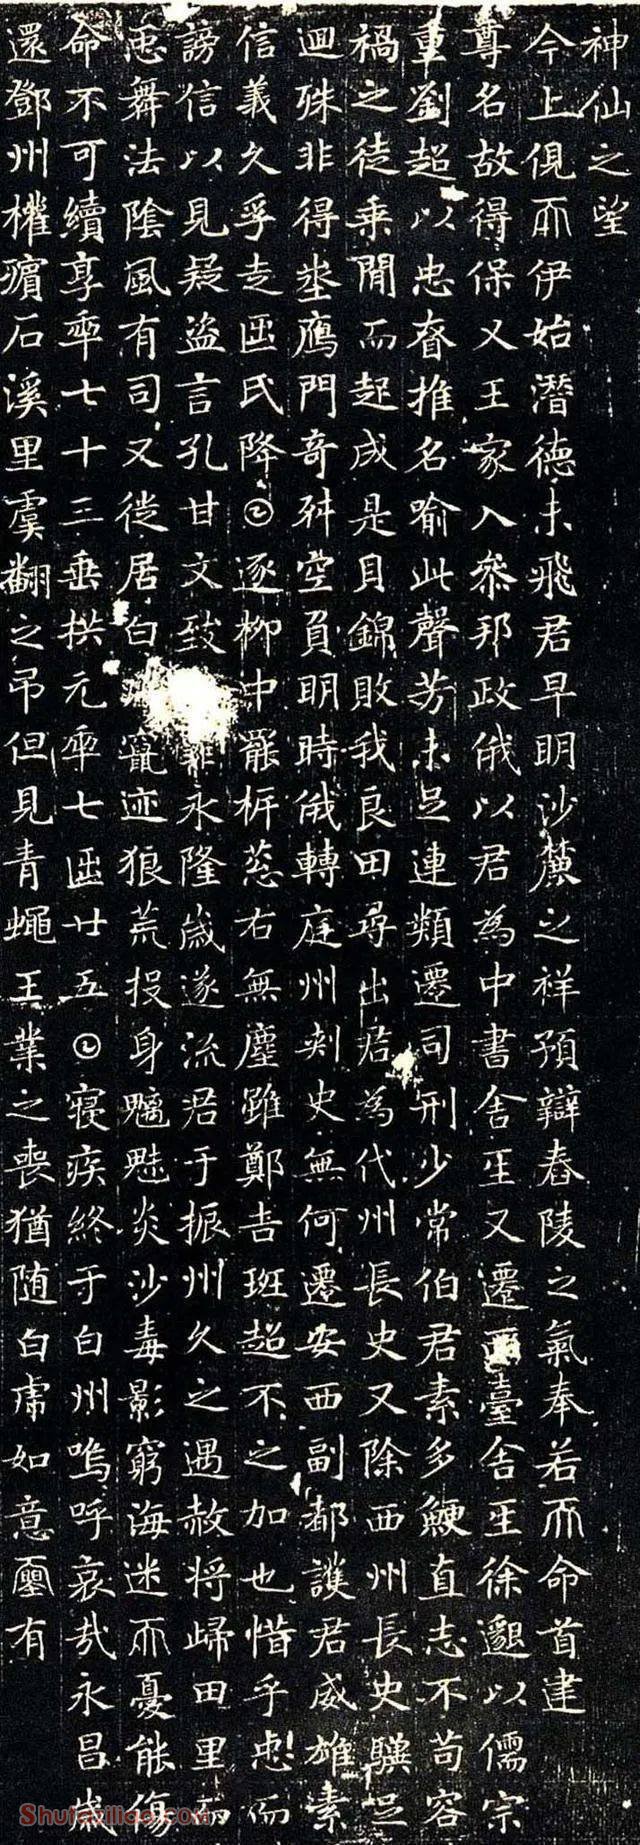 神仙之望
今上俔𠀑伊始潛德未飛君早明沙麓之祥預辯舂陵之氣奉若𠀑命首建
尊名故得保乂王家入叅邦政俄以君為中書舍𤯔又遷西臺舍𤯔徐邈以儒宗
重劉超以忠眘推名喻此聲芳未足連類遷司刑少常伯君素多鯁直志不苟容
禍之徒乘閒而起成是貝錦敗我良田尋出君為代州長史又除西州長史驥足
迴殊非得坐鷹門奇舛空負明時俄轉庭州刺史無何遷安西副都護君威雄素
信義久孚走𠥱氏降𡆠逐柳中罷柝葱右無塵雖鄭吉班超不之加也惜乎忠而
謗信以見疑盜言孔甘文致罪永隆歲遂流君于振州久之遇赦將歸田里而
惡舞法陰風有司又徙居白州竄迹狼荒投身魑魅炎沙毒影窮海迷𠀑憂能傷
命不可續享𠡦七十三垂拱元𠡦七𠥱廿五𡆠寢疾終于白州嗚呼哀哉永昌歲
還鄧州權殯石溪里虞翻之弔但見青蠅王業之喪猶随白虎如意有
Shufaziliao.com